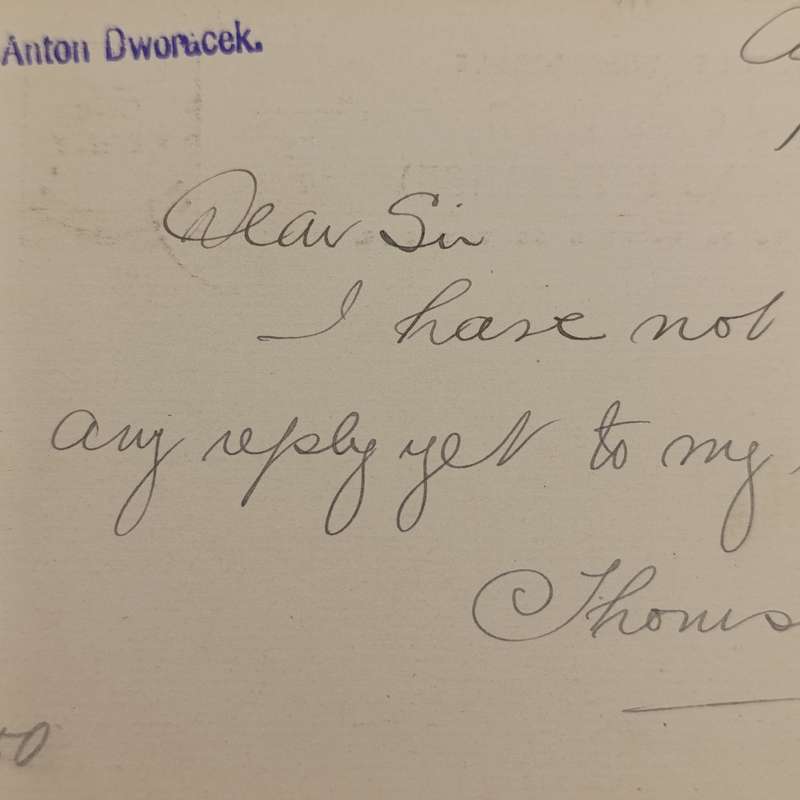 Anton Dworacek.
Dear Sir
I have not
any reply yet to my
Thoms
50